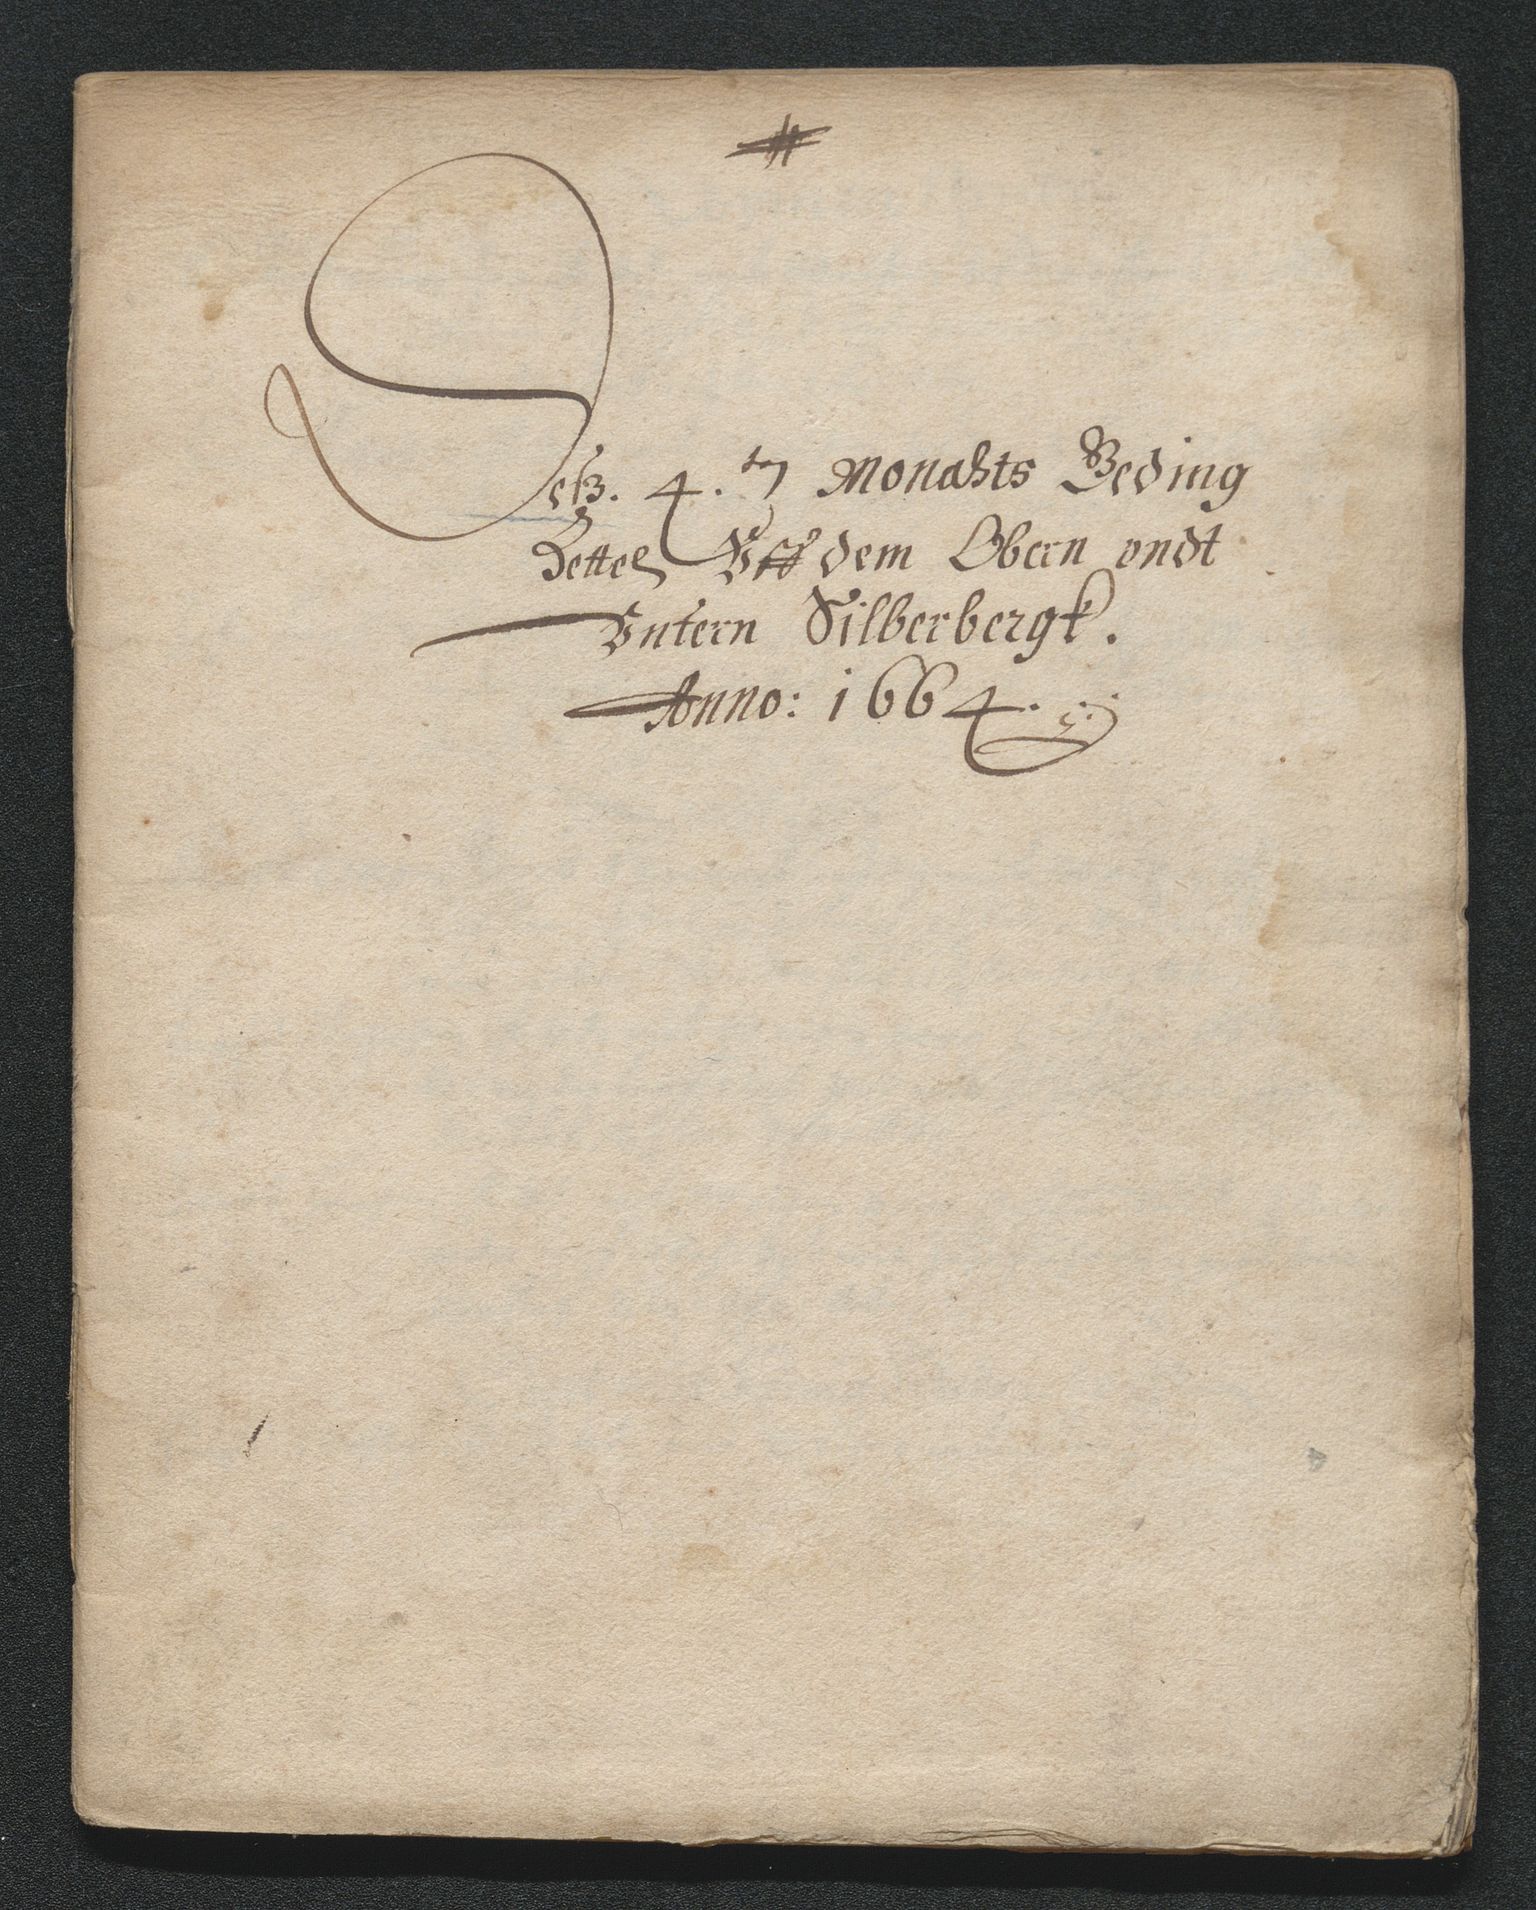 Deß. 4.ten Monahts Geding
Zettel Vff dem Obern vndt
Vntern Silberbergk.
Anno: 1664.